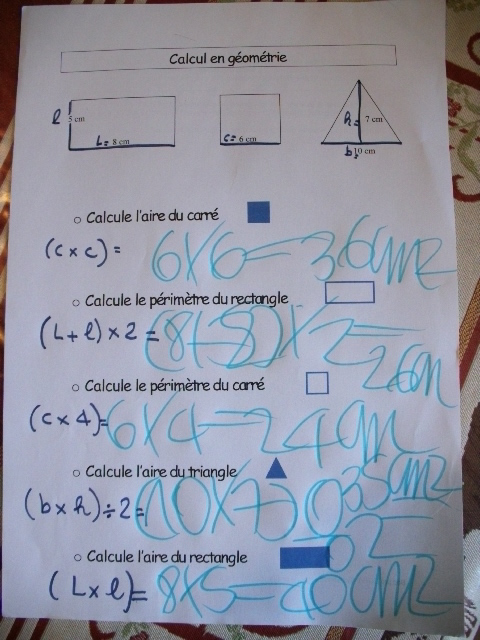 Calcul en géométrie
l 5 cm
L= 8 cm
c= 6 cm
h= 7 cm
b= 10 cm
○ Calcule l'aire du carré
(c x c) = 6x6=36cm2
○ Calcule le périmètre du rectangle
(L + l) x 2 = (8+5)x2=
26m
○ Calcule le périmètre du carré
(c x 4)= 6x4=24cm
○ Calcule l'aire du triangle
(b x h) ÷ 2 = (10x7) 35cm2
2
○ Calcule l'aire du rectangle
(L x l)= 8x5=40cm2